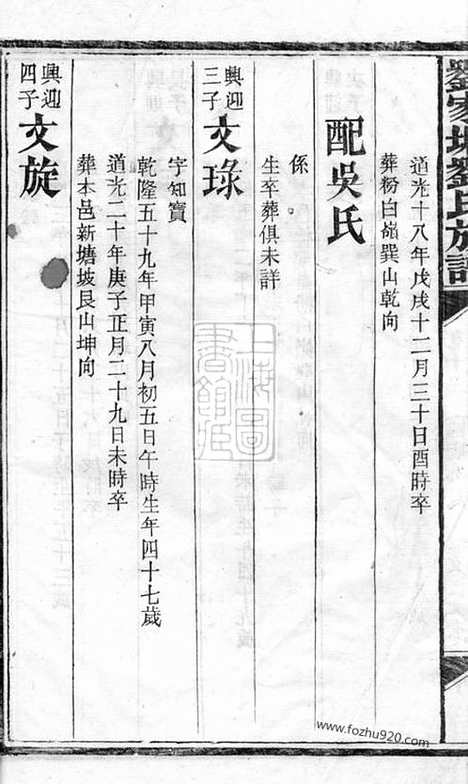 劉家塅劉氏族譜
道光十八年戊戌十二月三十日酉時卒
葬粉白嶺巽山乾向
配吳氏
係
生卒葬俱未詳
興迎三子
文琭
字知寶
乾隆五十九年甲寅八月初五日午時生年四十七歲
道光二十年庚子正月二十九日未時卒
葬本邑新塘坡艮山坤向
興迎四子
文旋
上海圖書館藏
www.fozhu920.com